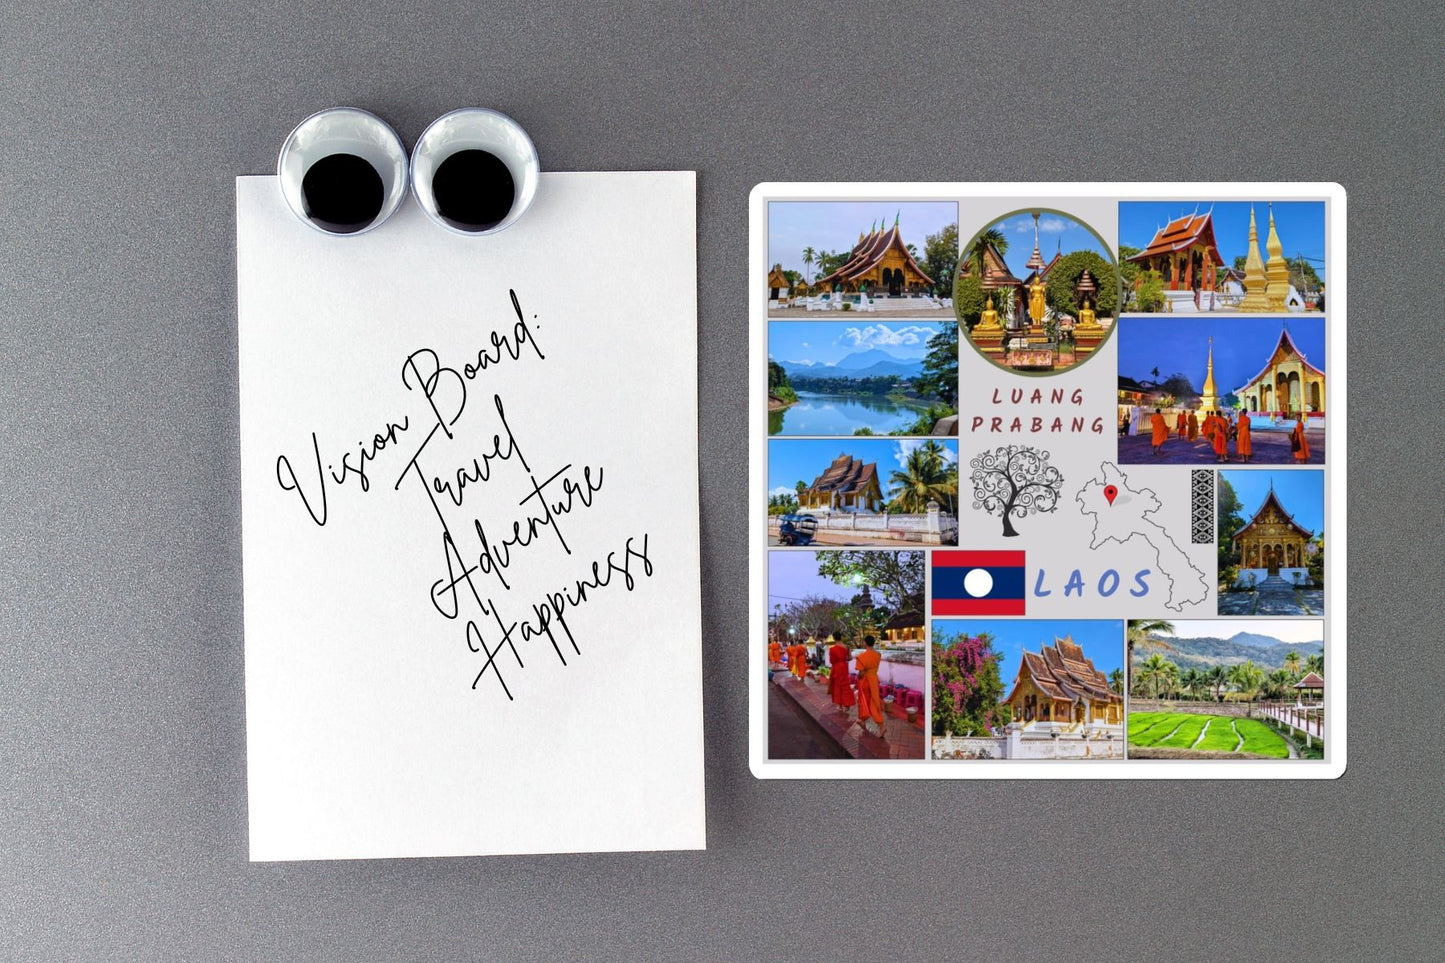 Vision Board:
Travel
Adventure
Happiness
LUANG
PRABANG
LAOS